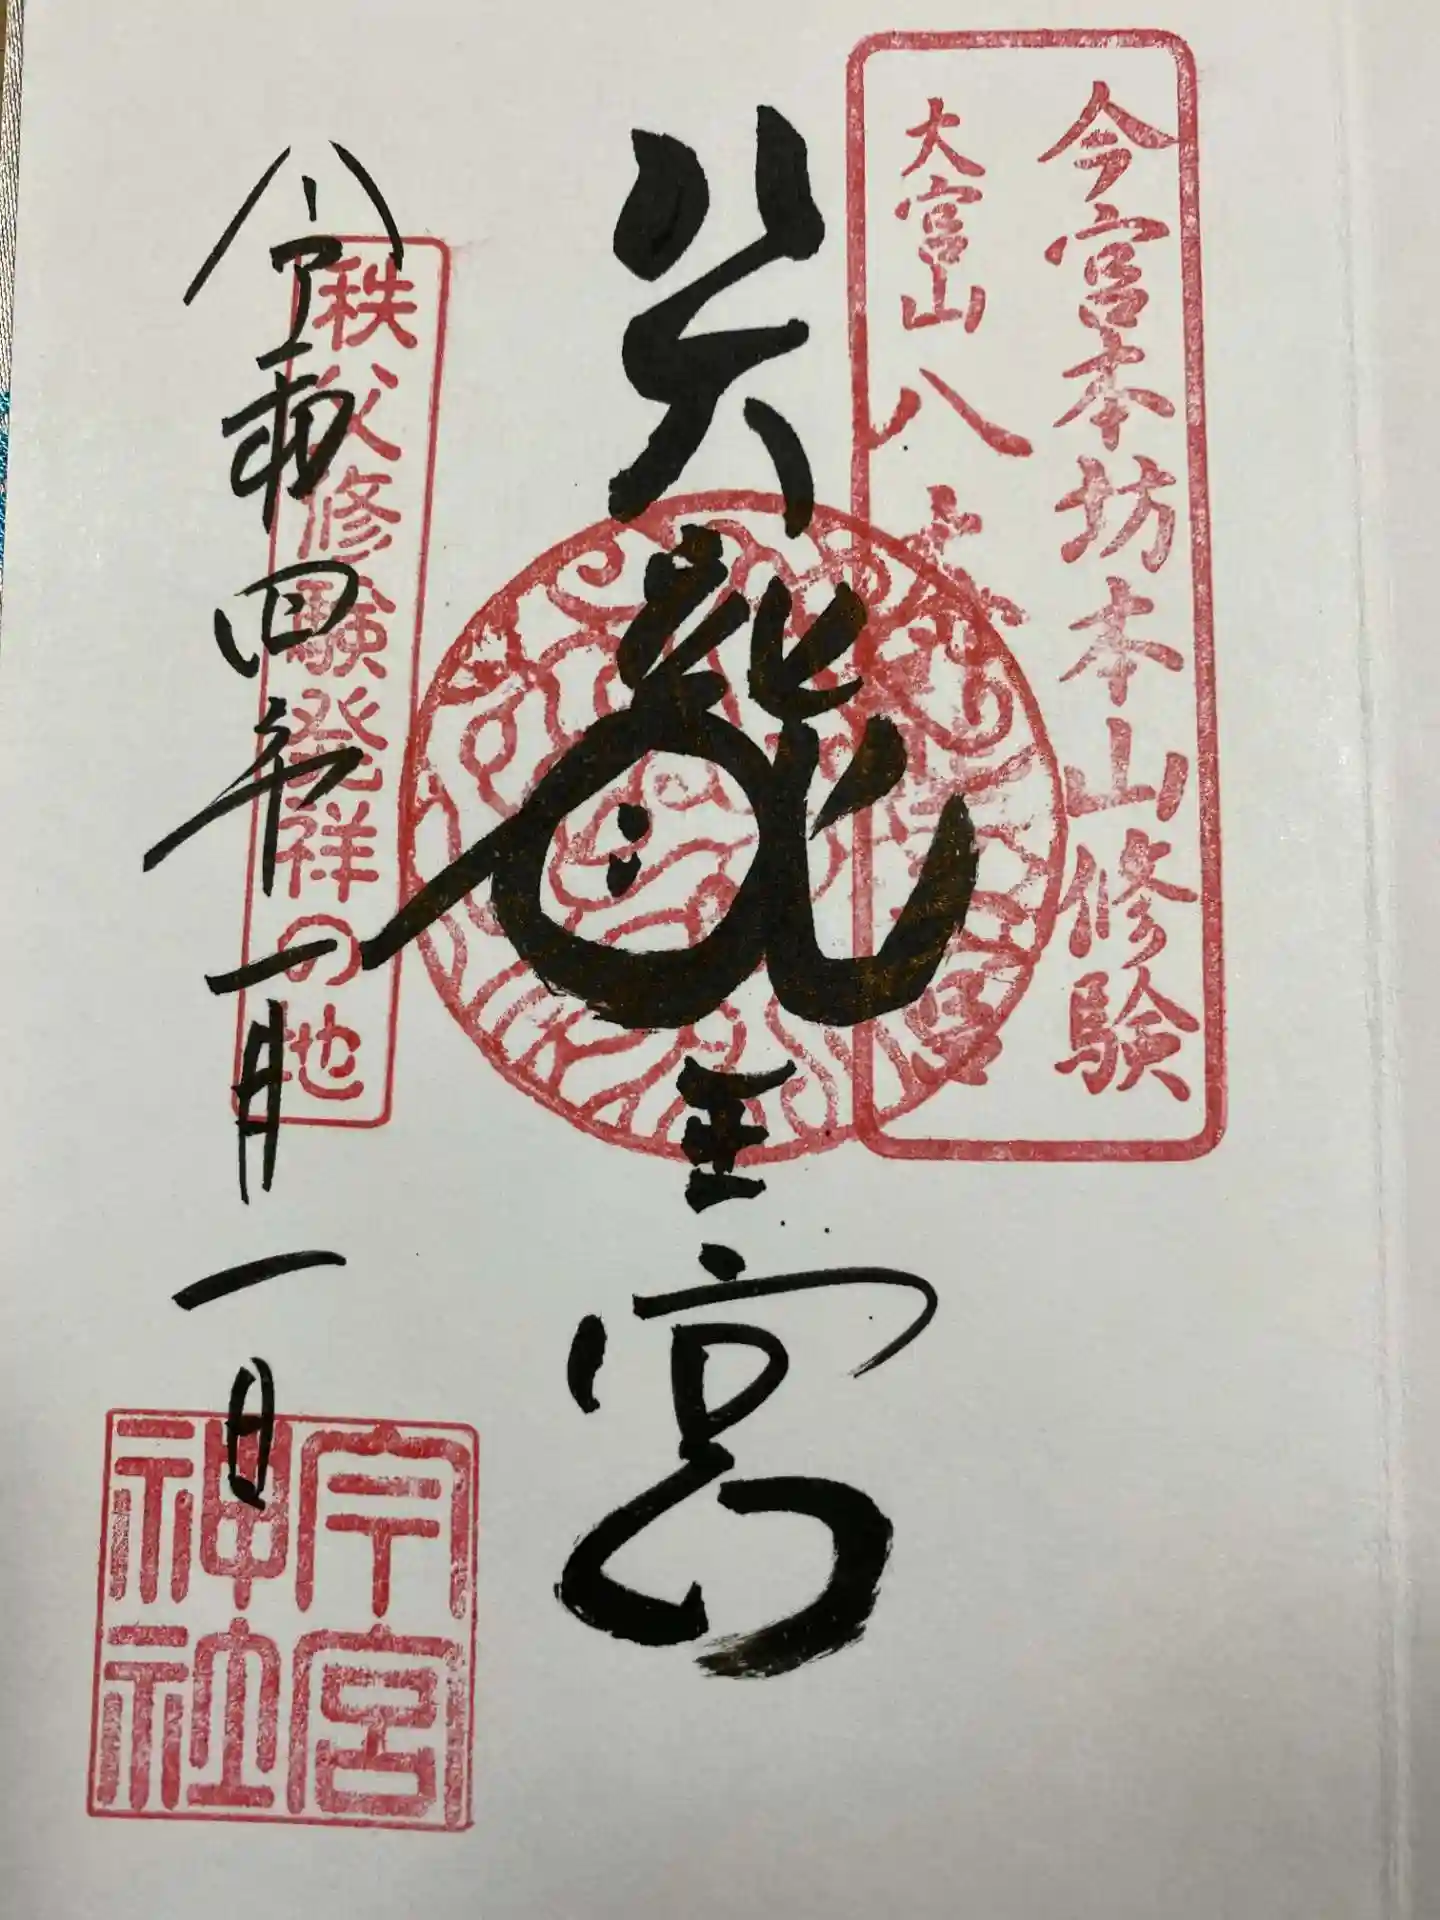 今宮本坊本山修験
大宮山 八
八大龍王宮
令和四年一月一日
秩父修験発祥の地
今宮
神社